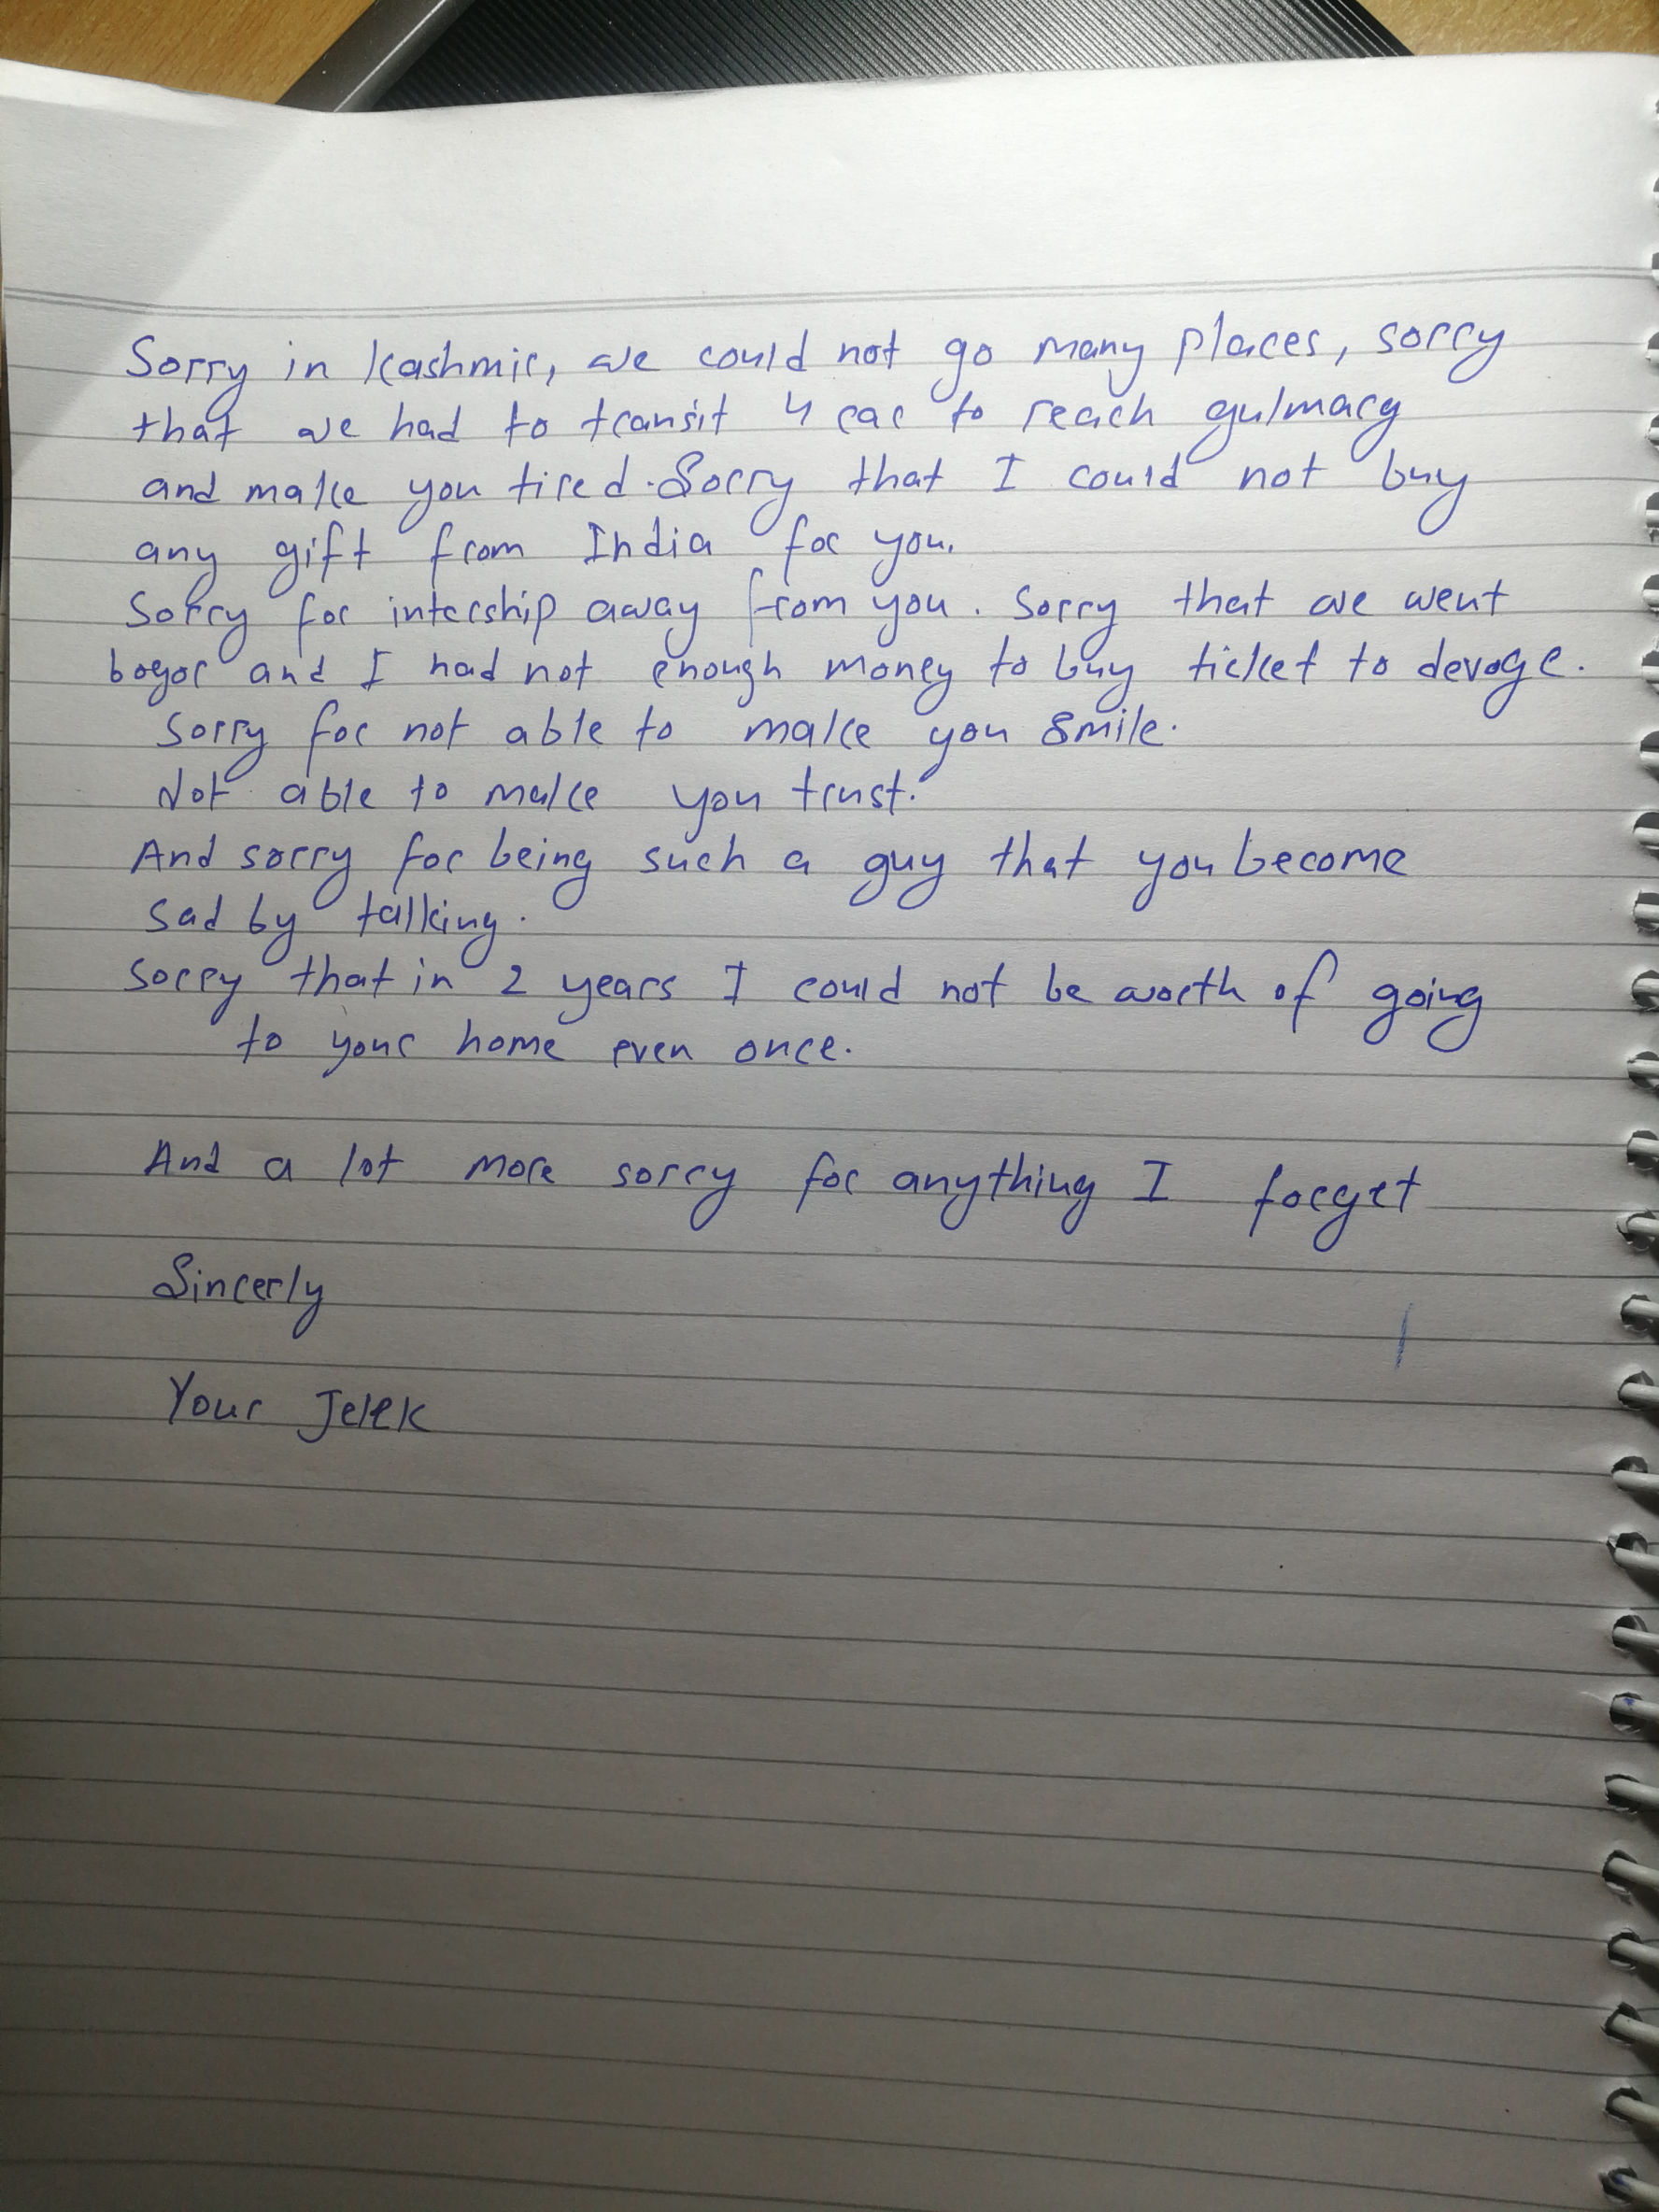 Sorry in Kashmir, we could not go many places, sorry
that we had to transit 4 car to reach gulmarg
and make you tired. Sorry that I could not buy
any gift from India for you.
Sorry for intership away from you. Sorry that we went
bogor and I had not enough money to buy ticket to devoge.
Sorry for not able to make you smile.
Not able to make you trust.
And sorry for being such a guy that you become
sad by talking.
Sorry that in 2 years I could not be worth of going
to your home even once.
And a lot more sorry for anything I forget
Sincerly
Your Jelek